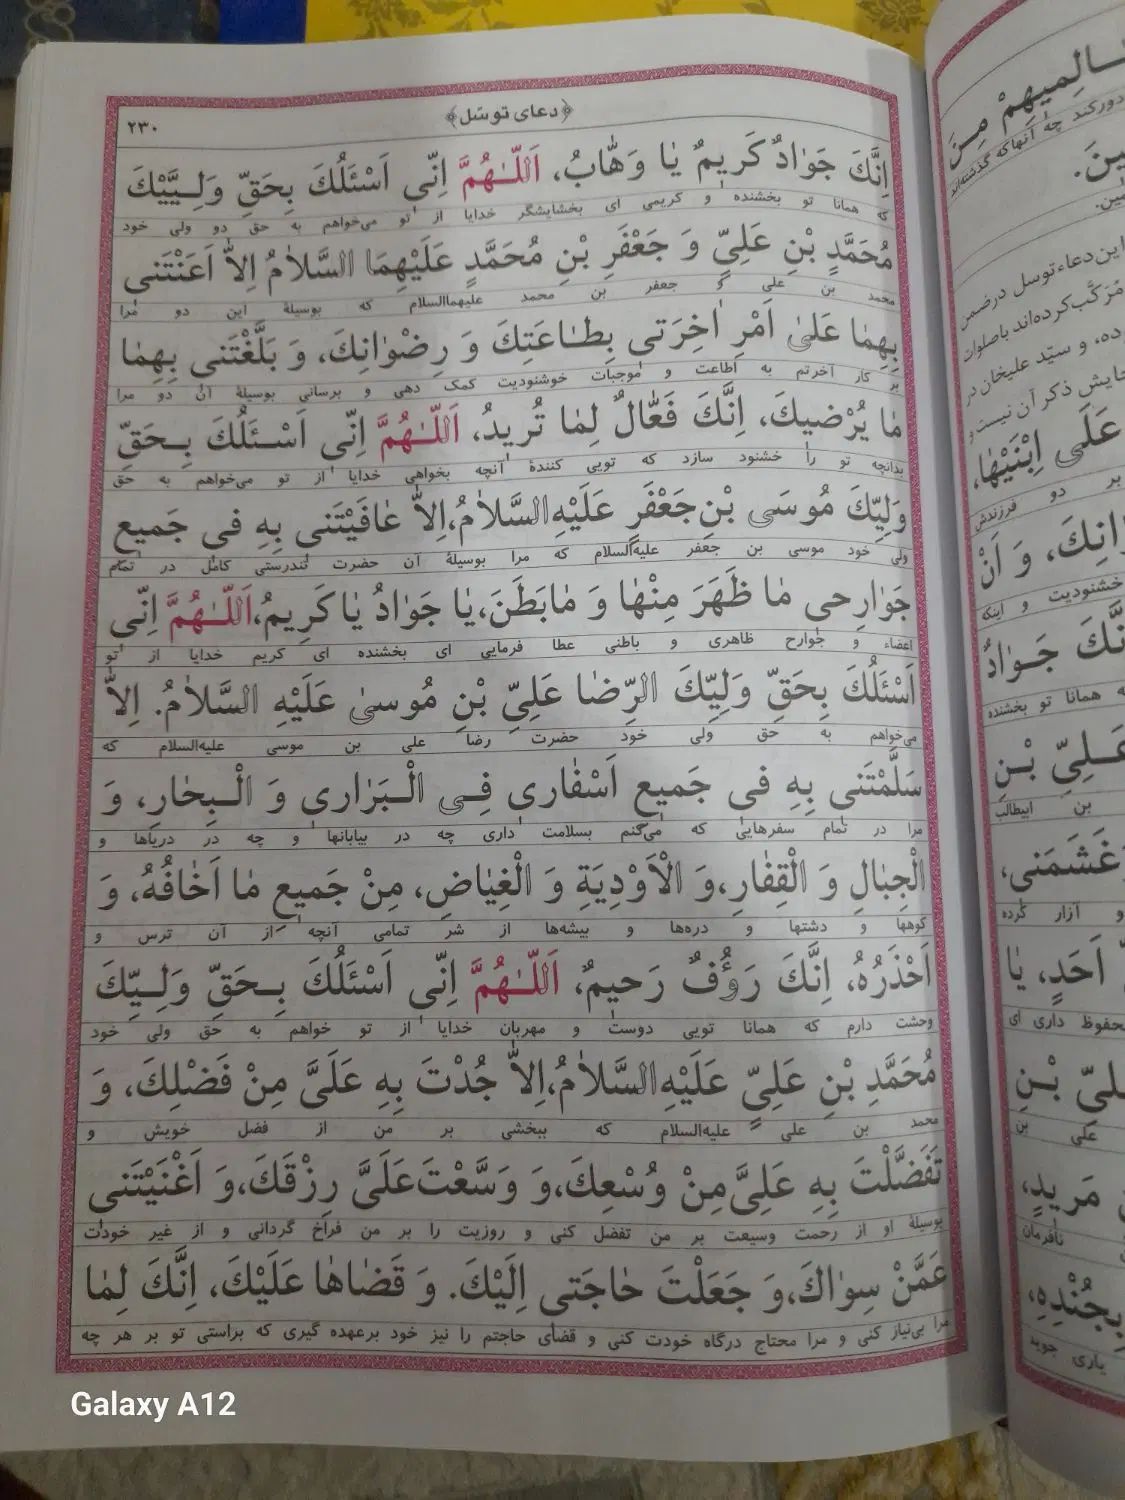 ﴿دعای توسّل﴾
۲۳۰
اِنَّکَ جَوٰادٌ کَریمٌ یٰا وَهّٰابُ، اَللّٰهُمَّ اِنّی اَسْئَلُکَ بِحَقِّ وَلِیَّیْکَ
که همانا تو بخشنده و کریمی ای بخشایشگر خدایا از تو می‌خواهم به حق دو ولی خود
مُحَمَّدِ بْنِ عَلِیٍّ وَ جَعْفَرِ بْنِ مُحَمَّدٍ عَلَیْهِمَا السَّلاٰمُ اِلاّٰ اَعَنْتَنی
محمد بن علی و جعفر بن محمد علیهماالسلام که بوسیلهٔ این دو مرا
بِهِمٰا عَلیٰ اَمْرِ اٰخِرَتی بِطٰاعَتِکَ وَ رِضْوٰانِکَ، وَ بَلَّغْتَنی بِهِمٰا
بر کار آخرتم به اطاعت و موجبات خوشنودیت کمک دهی و برسانی بوسیلهٔ آن دو مرا
مٰا یُرْضیکَ، اِنَّکَ فَعّٰالٌ لِمٰا تُریدُ، اَللّٰهُمَّ اِنّی اَسْئَلُکَ بِحَقِّ
بدانچه تو را خشنود سازد که تویی کنندهٔ آنچه بخواهی خدایا از تو می‌خواهم به حق
وَلِیِّکَ مُوسَی بْنِ جَعْفَرٍ عَلَیْهِ السَّلاٰمُ، اِلاّٰ عٰافَیْتَنی بِهِ فی جَمیعِ
ولی خود موسی بن جعفر علیه‌السلام که مرا بوسیلهٔ آن حضرت تندرستی کامل در تمام
جَوٰارِحی مٰا ظَهَرَ مِنْهٰا وَ مٰا بَطَنَ، یٰا جَوٰادُ یٰا کَریمُ، اَللّٰهُمَّ اِنّی
اعضاء و جوارح ظاهری و باطنی عطا فرمایی ای بخشنده ای کریم خدایا از تو
اَسْئَلُکَ بِحَقِّ وَلِیِّکَ الرِّضٰا عَلِیِّ بْنِ مُوسیٰ عَلَیْهِ السَّلاٰمُ. اِلاّٰ
می‌خواهم به حق ولی خود حضرت رضا علی بن موسی علیه‌السلام که
سَلَّمْتَنی بِهِ فی جَمیعِ اَسْفٰاری فِی الْبَرٰاری وَ الْبِحٰارِ، وَ
مرا در تمام سفرهایی که می‌کنم بسلامت داری چه در بیابانها و چه در دریاها و
الْجِبٰالِ وَ الْقِفٰارِ، وَ الْاَوْدِیَةِ وَ الْغِیٰاضِ، مِنْ جَمیعِ مٰا اَخٰافُهُ، وَ
کوهها و دشتها و دره‌ها و بیشه‌ها از شر تمامی آنچه از آن ترس و
اَحْذَرُهُ، اِنَّکَ رَؤُفٌ رَحیمٌ، اَللّٰهُمَّ اِنّی اَسْئَلُکَ بِحَقِّ وَلِیِّکَ
وحشت دارم که همانا تویی دوست و مهربان خدایا از تو خواهم به حق ولی خود
مُحَمَّدِ بْنِ عَلِیٍّ عَلَیْهِ السَّلاٰمُ، اِلاّٰ جُدْتَ بِهِ عَلَیَّ مِنْ فَضْلِکَ، وَ
محمد بن علی علیه‌السلام که ببخشی بر من از فضل خویش و
تَفَضَّلْتَ بِهِ عَلَیَّ مِنْ وُسْعِکَ، وَ وَسَّعْتَ عَلَیَّ رِزْقَکَ، وَ اَغْنَیْتَنی
بوسیلهٔ او از رحمت وسیعت بر من تفضل کنی و روزیت را بر من فراخ گردانی و از غیر خودت
عَمَّنْ سِوٰاکَ، وَ جَعَلْتَ حٰاجَتی اِلَیْکَ. وَ قَضٰاهٰا عَلَیْکَ، اِنَّکَ لِمٰا
مرا بی‌نیاز کنی و مرا محتاج درگاه خودت کنی و قضای حاجتم را نیز خود برعهده گیری که براستی تو بر هر چه
دورکند چه آنهاکه گذشته‌اند
این‌دعاءتوسل درضمن
مُرَکَّب‌کرده‌اند باصلوات
ده، و سیّد علیخان در
جایش ذکر آن نیست و
عَلَی ابْنَیْهٰا،
بر دو فرزندش
وَ اَنْ
خشنودیت و اینکه
جَوٰادٌ
همانا تو بخشنده
بْنِ
بن ابیطالب
و آزار کرده
اَحَدٍ، یٰا
محفوظ داری ای
بْنِ
علی بن
مَریدٍ،
نافرمان
بِجُنْدِهِ،
یاری جوید
Galaxy A12